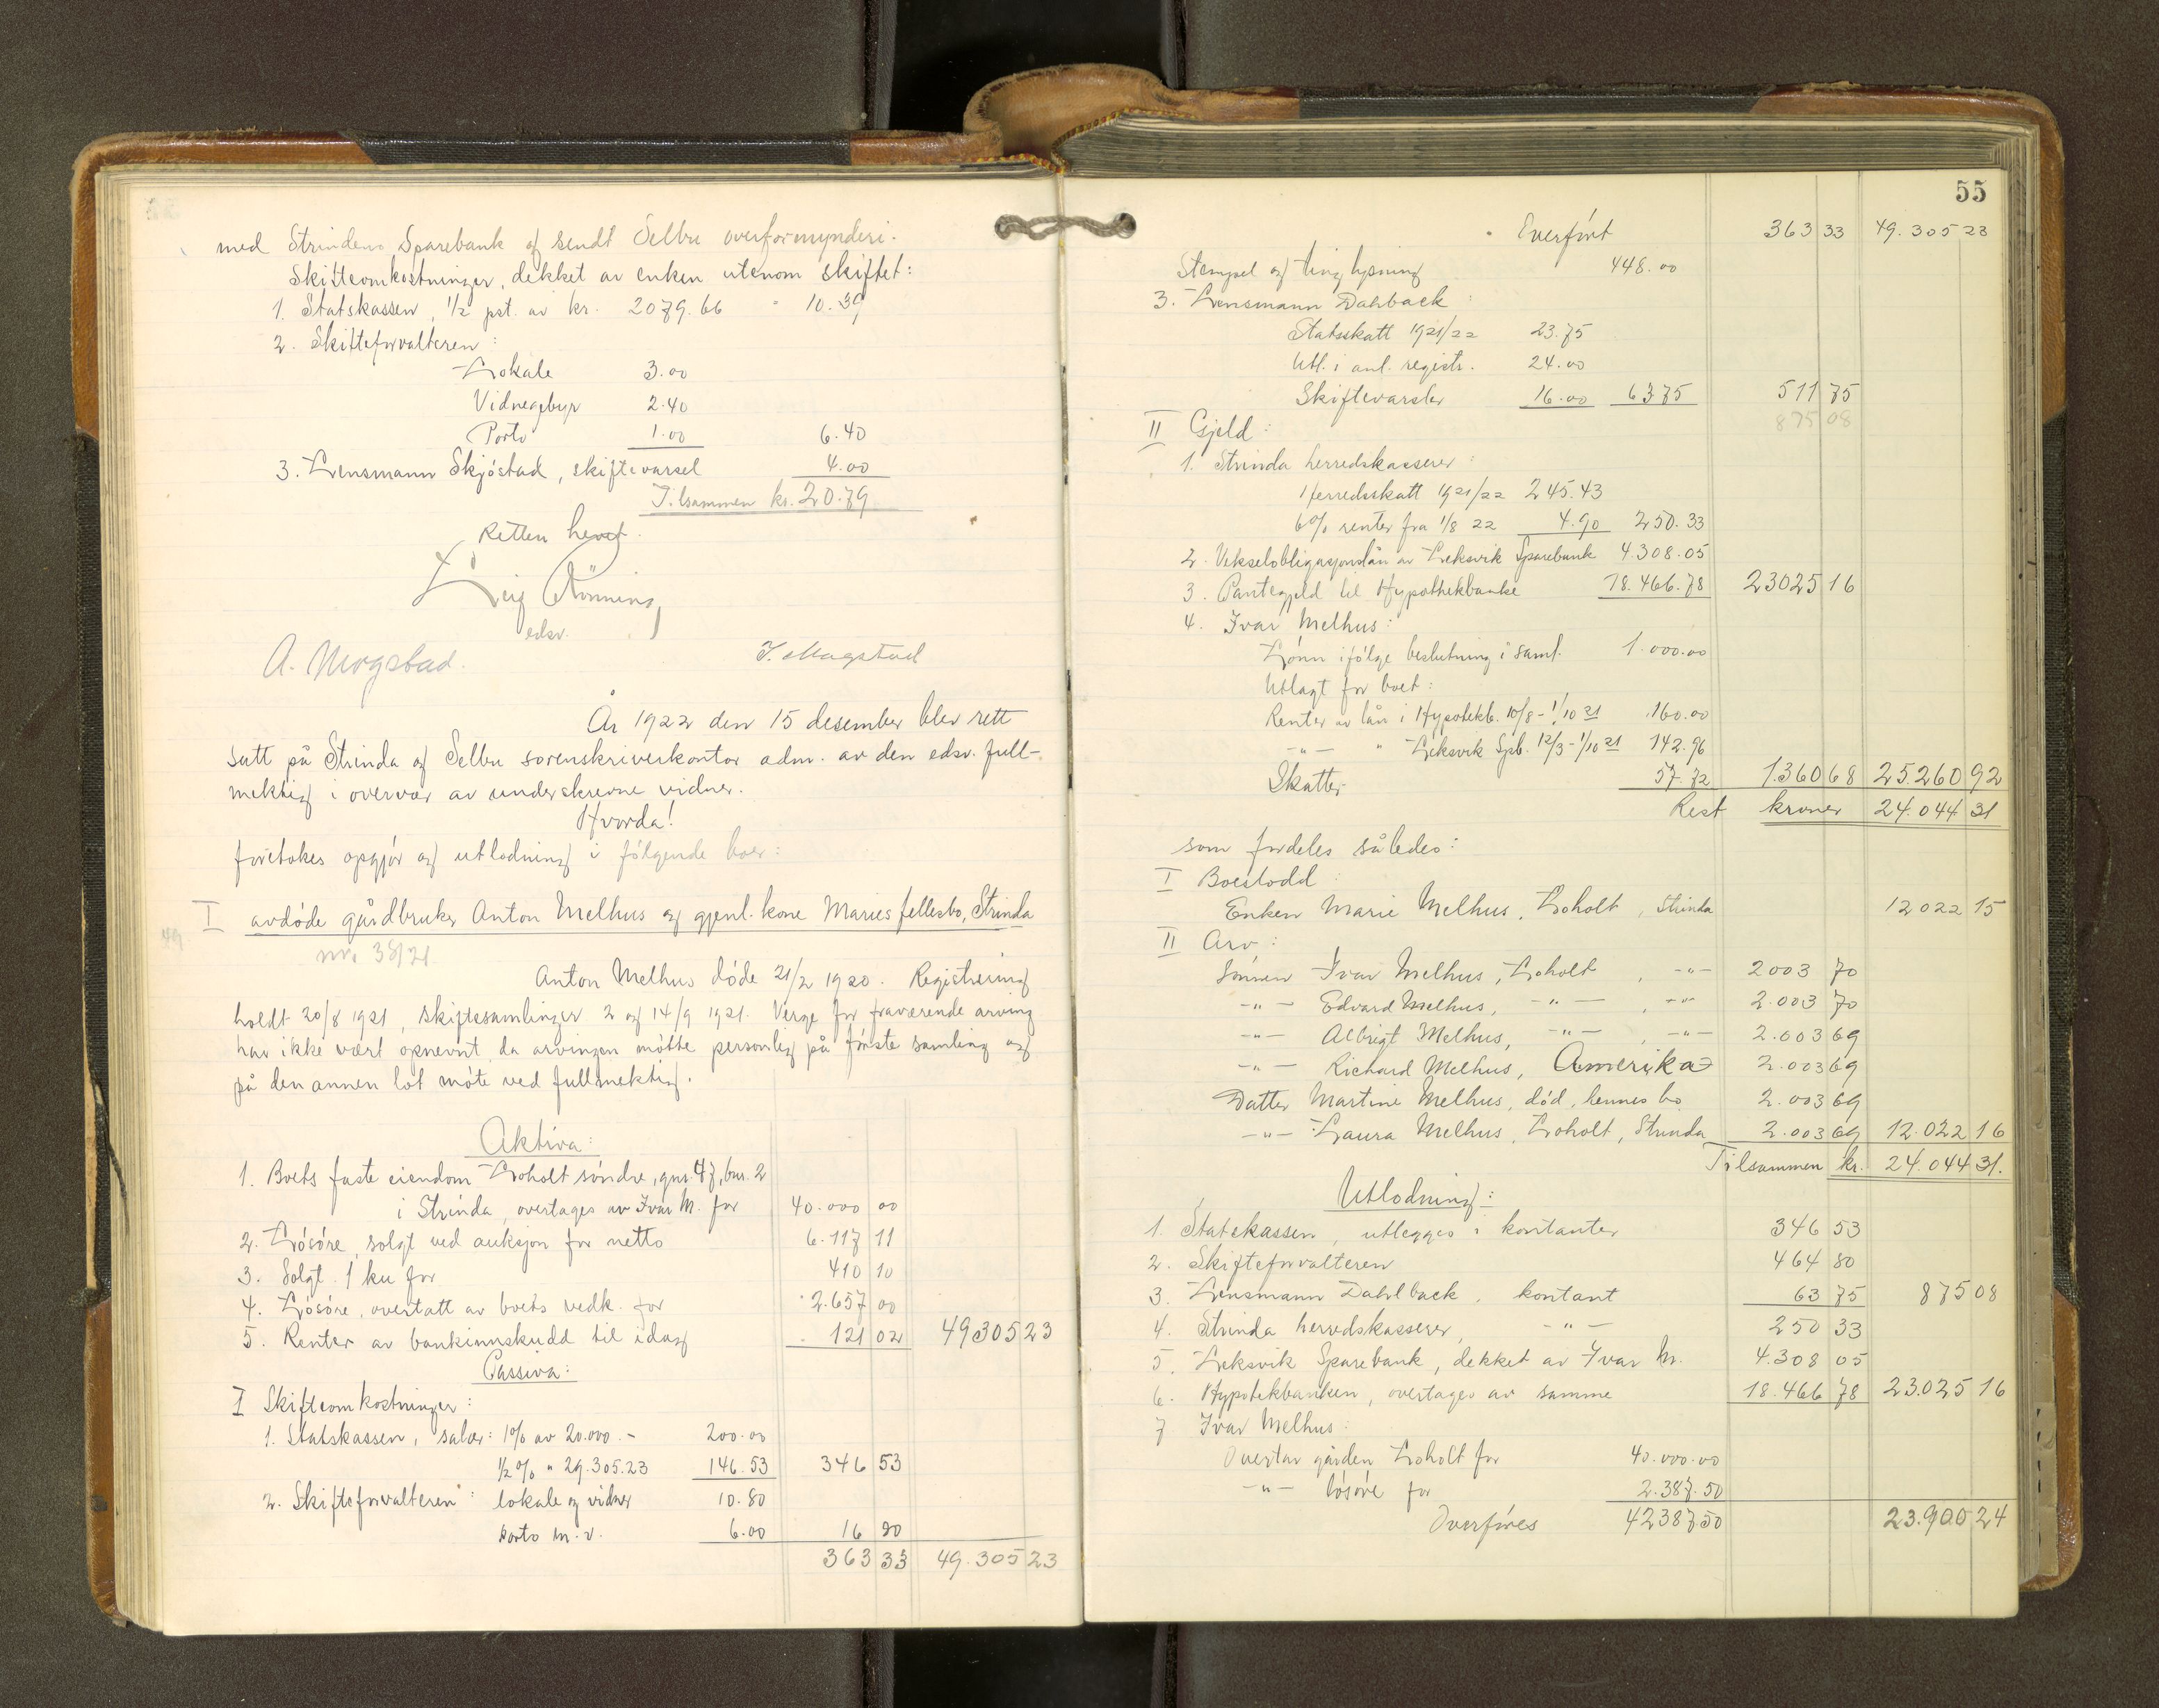 med Strindens Sparebank og sendt Selbu overformynderi.
Skifteomkostninger, dekket av enken utenom skiftet:
1. Statskassen, 1/2 pst. av kr. 2079.66 10.39
2. Skifteforvalteren:
Lokale 3.00
Vidnegebyr 2.40
Porto 1.00 6.40
3. Lensmann Skjöstad, skiftevarsel 4.00
Tilsammen kr. 20.79
Retten hevet.
Leif Rönning
edsv.
A. Mogstad. J. Mogstad
År 1922 den 15 desember blev rett
satt på Strinda og Selbu sorenskriverkontor adm. av den edsv. full-
mektig i overvær av underskrevne vidner.
Hvorda!
foretokes opgjör og utlodning i fölgende boer:
I avdöde gårdbruker Anton Melhus og gjenl. kone Maries fellesbo, Strinda
nr. 38/21
Anton Melhus döde 21/2 1920. Registrering
holdt 20/8 1921, skiftesamlinger 2 og 14/9 1921. Verge for fraværende arving
har ikke vært opnevnt, da arvingen mötte personlig på förste samling og
på den annen lot möte ved fullmektig.
Aktiva:
1. Boets faste eiendom Loholt söndre, gnr. 47, bnr. 2
i Strinda, overtages av Ivar M. for 40.000 00
2. Lösöre, solgt ved auksjon for netto 6.117 11
3. Solgt 1 ku for 410 10
4. Lösöre, overtatt av boets vedk. for 2.657 00
5. Renter av bankinnskudd til idag 121 02 49305 23
Passiva:
I Skifteomkostninger:
1. Statskassen, salær: 1% av 20.000.- 200.00
1/2% " 29.305.23 146.53 346 53
2. Skifteforvalteren: lokale og vidner 10.80
porto m.v. 6.00 16 80
363 33 49.305 23
55
Overfört 363 33 49.305 23
Stempel og tinglysning 448.00
3. Lensmann Dahlback:
Statsskatt 1921/22 23.75
Utl. i anl. registr. 24.00
Skiftevarsler 16.00 63 75 511 75
875 08
II Gjeld:
1. Strinda herredskasserer:
Herredsskatt 1921/22 245.43
6% renter fra 1/8 22 4.90 250.33
2. Vekselobligasjonslån av Leksvik Sparebank 4.308.05
3. Pantegjeld til Hypothekbanken 18.466.78 23025 16
4. Ivar Melhus:
Lönn ifölge beslutning i saml. 1.000.00
Utlagt for boet:
Renter av lån i Hypotekb. 10/8 - 1/10 21 160.00
-"- " Leksvik Spb. 12/3 - 1/10 21 142.96
Skatter 57.72 1.360 68 25260 92
Rest kroner 24.044 31
som fordeles således:
I Boeslodd:
Enken Marie Melhus, Loholt, Strinda 12022 15
II Arv:
Sönnen Ivar Melhus, Loholt, -"- 2003 70
-"- Edvard Melhus, -"- , -"- 2.003 70
-"- Albrigt Melhus, -"- , -"- 2.003 69
-"- Richard Melhus, Amerika 2.003 69
Datter Martine Melhus, död, hennes bo 2.003 69
-"- Laura Melhus, Loholt, Strinda 2.003 69 12.022 16
Tilsammen kr. 24.044 31.
Utlodning:
1. Statskassen, utlegges i kontanter 346 53
2. Skifteforvalteren 464 80
3. Lensmann Dahlback, kontant 63 75 875 08
4. Strinda herredskasserer, -"- 250 33
5. Leksvik Sparebank, dekket av Ivar M. 4.308 05
6. Hypotekbanken, overtages av samme 18.466 78 23.025 16
7 Ivar Melhus:
Overtar gården Loholt for 40.000.00
-"- lösöre for 2.387.50
Overföres 42387.50 23.900 24